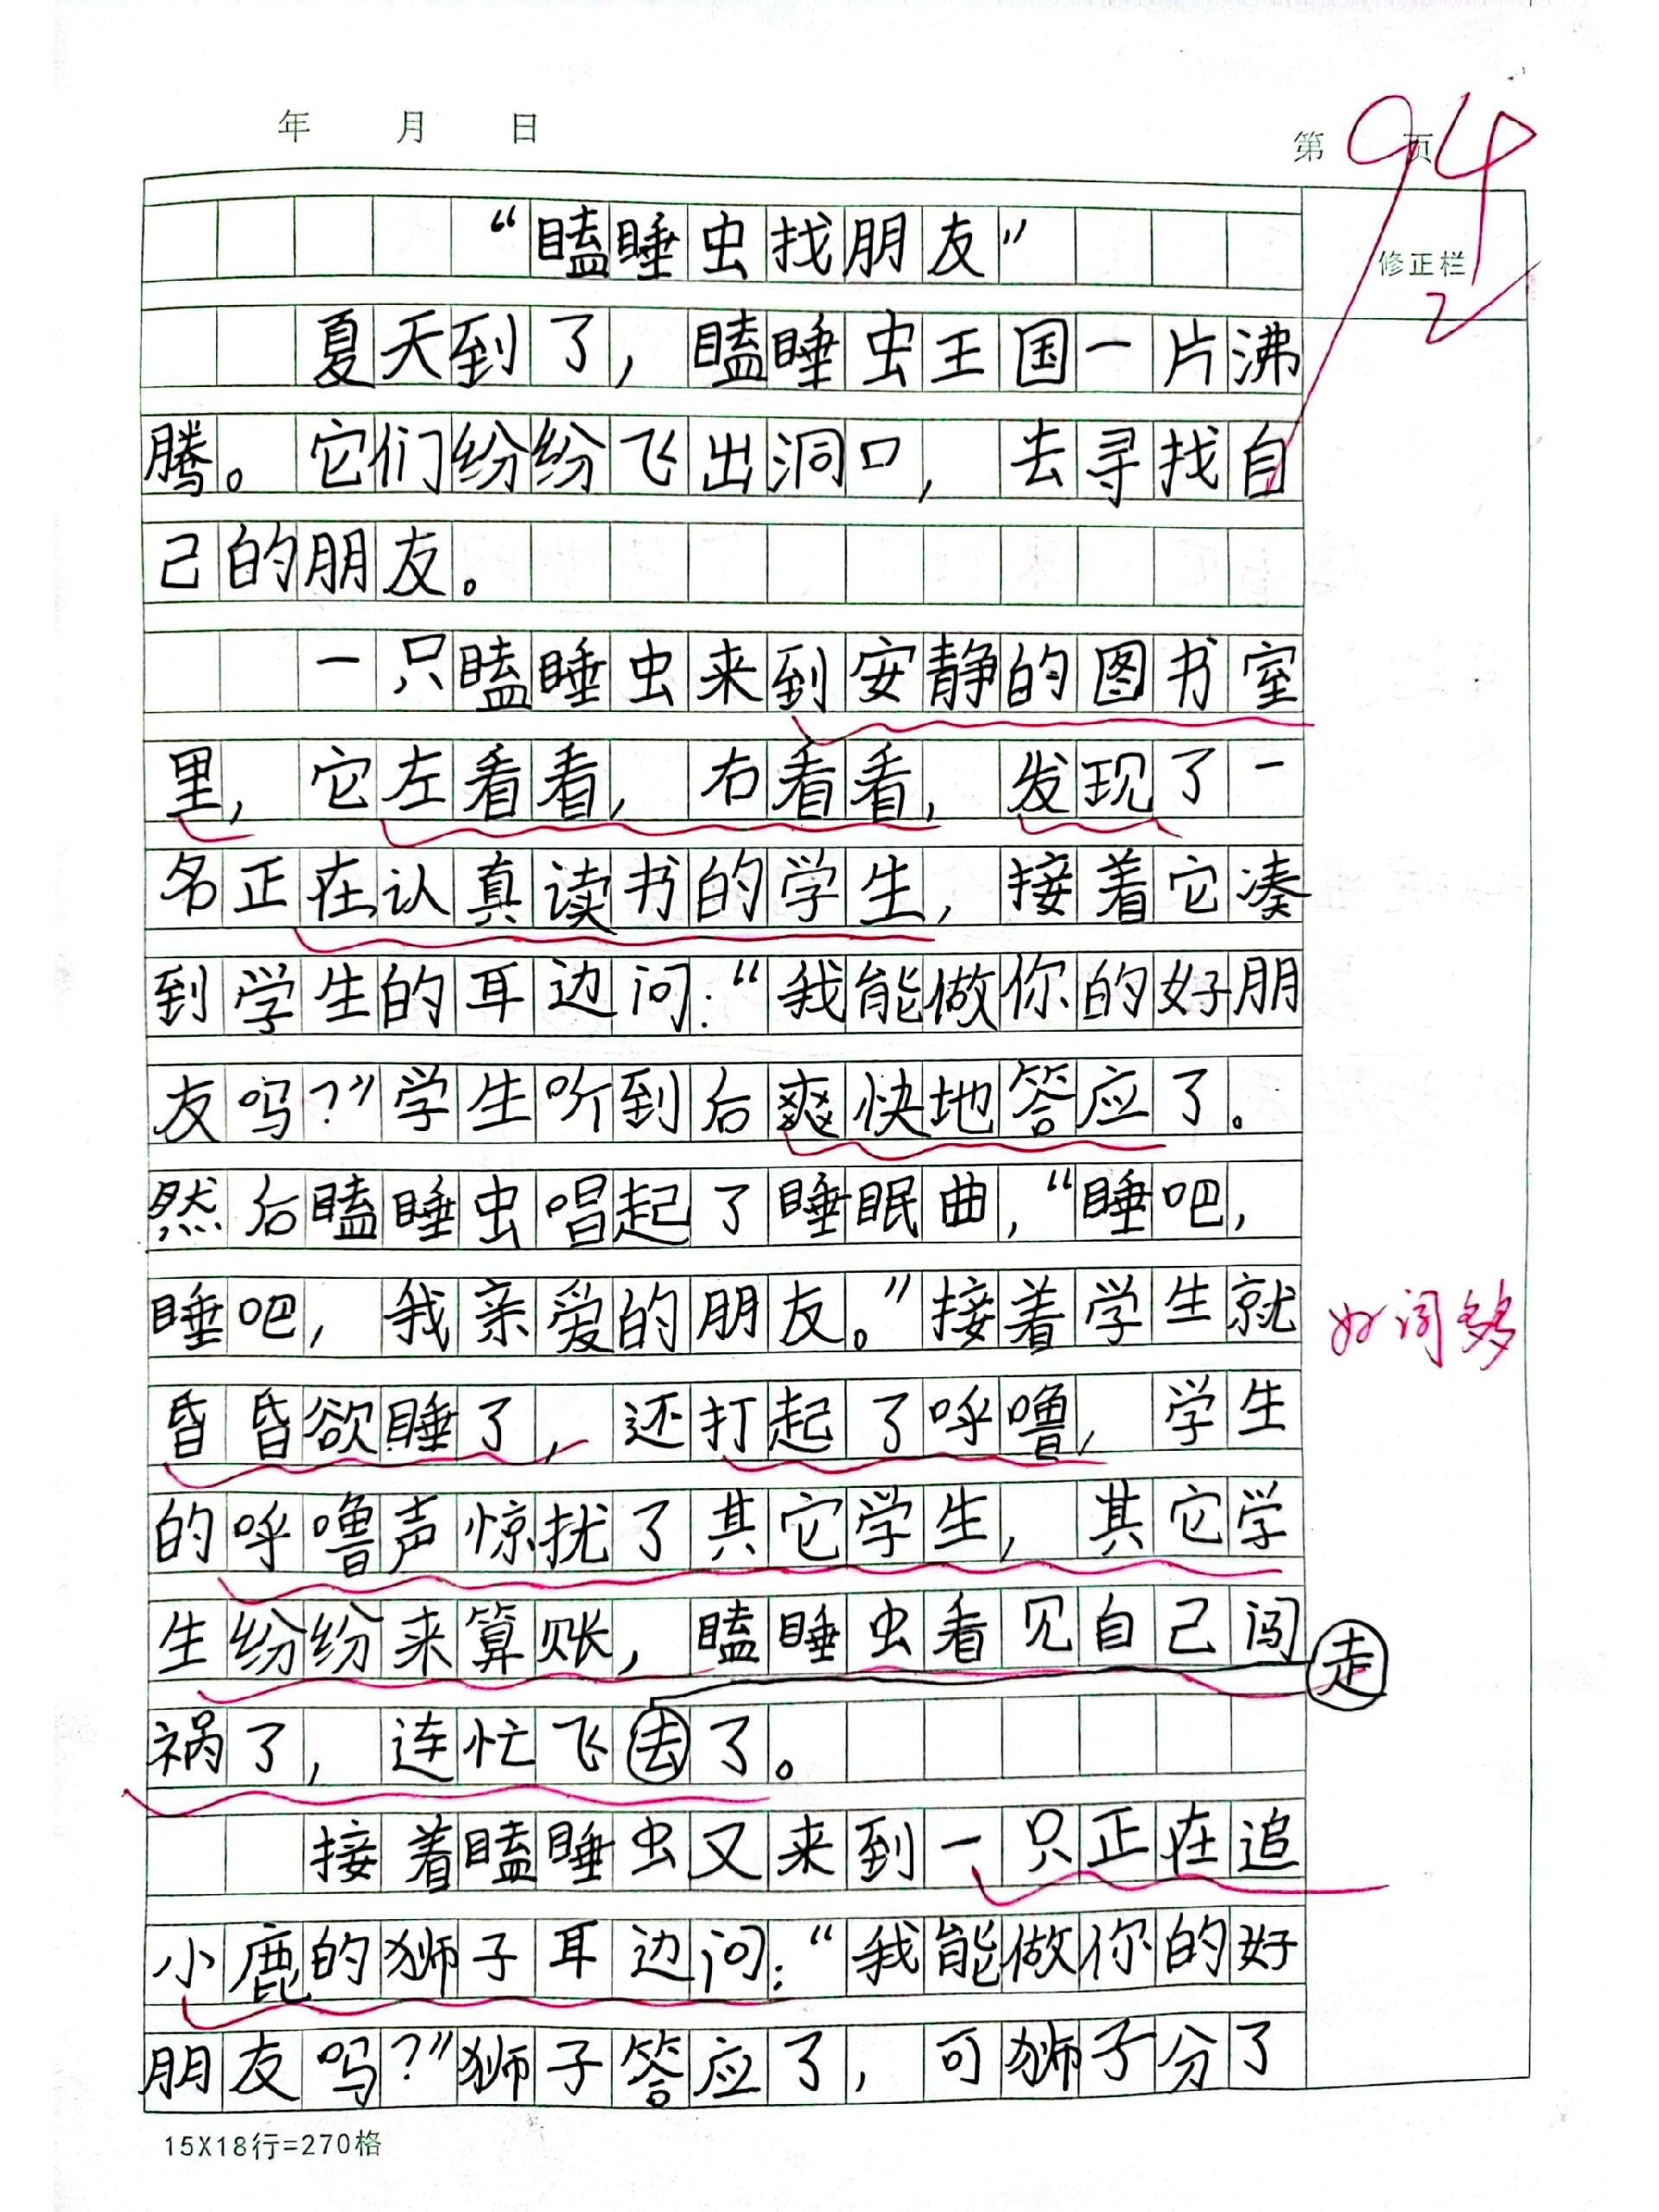 年 月 日 第 页
94
修正栏
2
“瞌睡虫找朋友”
夏天到了，瞌睡虫王国一片沸
腾。它们纷纷飞出洞口，去寻找自
己的朋友。
一只瞌睡虫来到安静的图书室
里，它左看看，右看看，发现了一
名正在认真读书的学生，接着它凑
到学生的耳边问：“我能做你的好朋
友吗？”学生听到后爽快地答应了。
然后瞌睡虫唱起了睡眠曲，“睡吧，
睡吧，我亲爱的朋友。”接着学生就
好词多
昏昏欲睡了，还打起了呼噜，学生
的呼噜声惊扰了其它学生，其它学
生纷纷来算账，瞌睡虫看见自己闯
走
祸了，连忙飞去了。
接着瞌睡虫又来到一只正在追
小鹿的狮子耳边问：“我能做你的好
朋友吗？”狮子答应了，可狮子分了
15X18行=270格